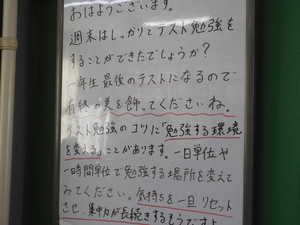 おはようございます。
週末はしっかりてテスト勉強を
することができたでしょうか？
一年生最後のテストになるので
有終の美を飾ってくださいね。
テスト勉強のコツに「勉強する環境
を変える」ことがあります。一日単位や
一時間単位で勉強する場所を変えて
みてください。気持ちを一旦リセット
させ、集中力が長続きするそうですよ